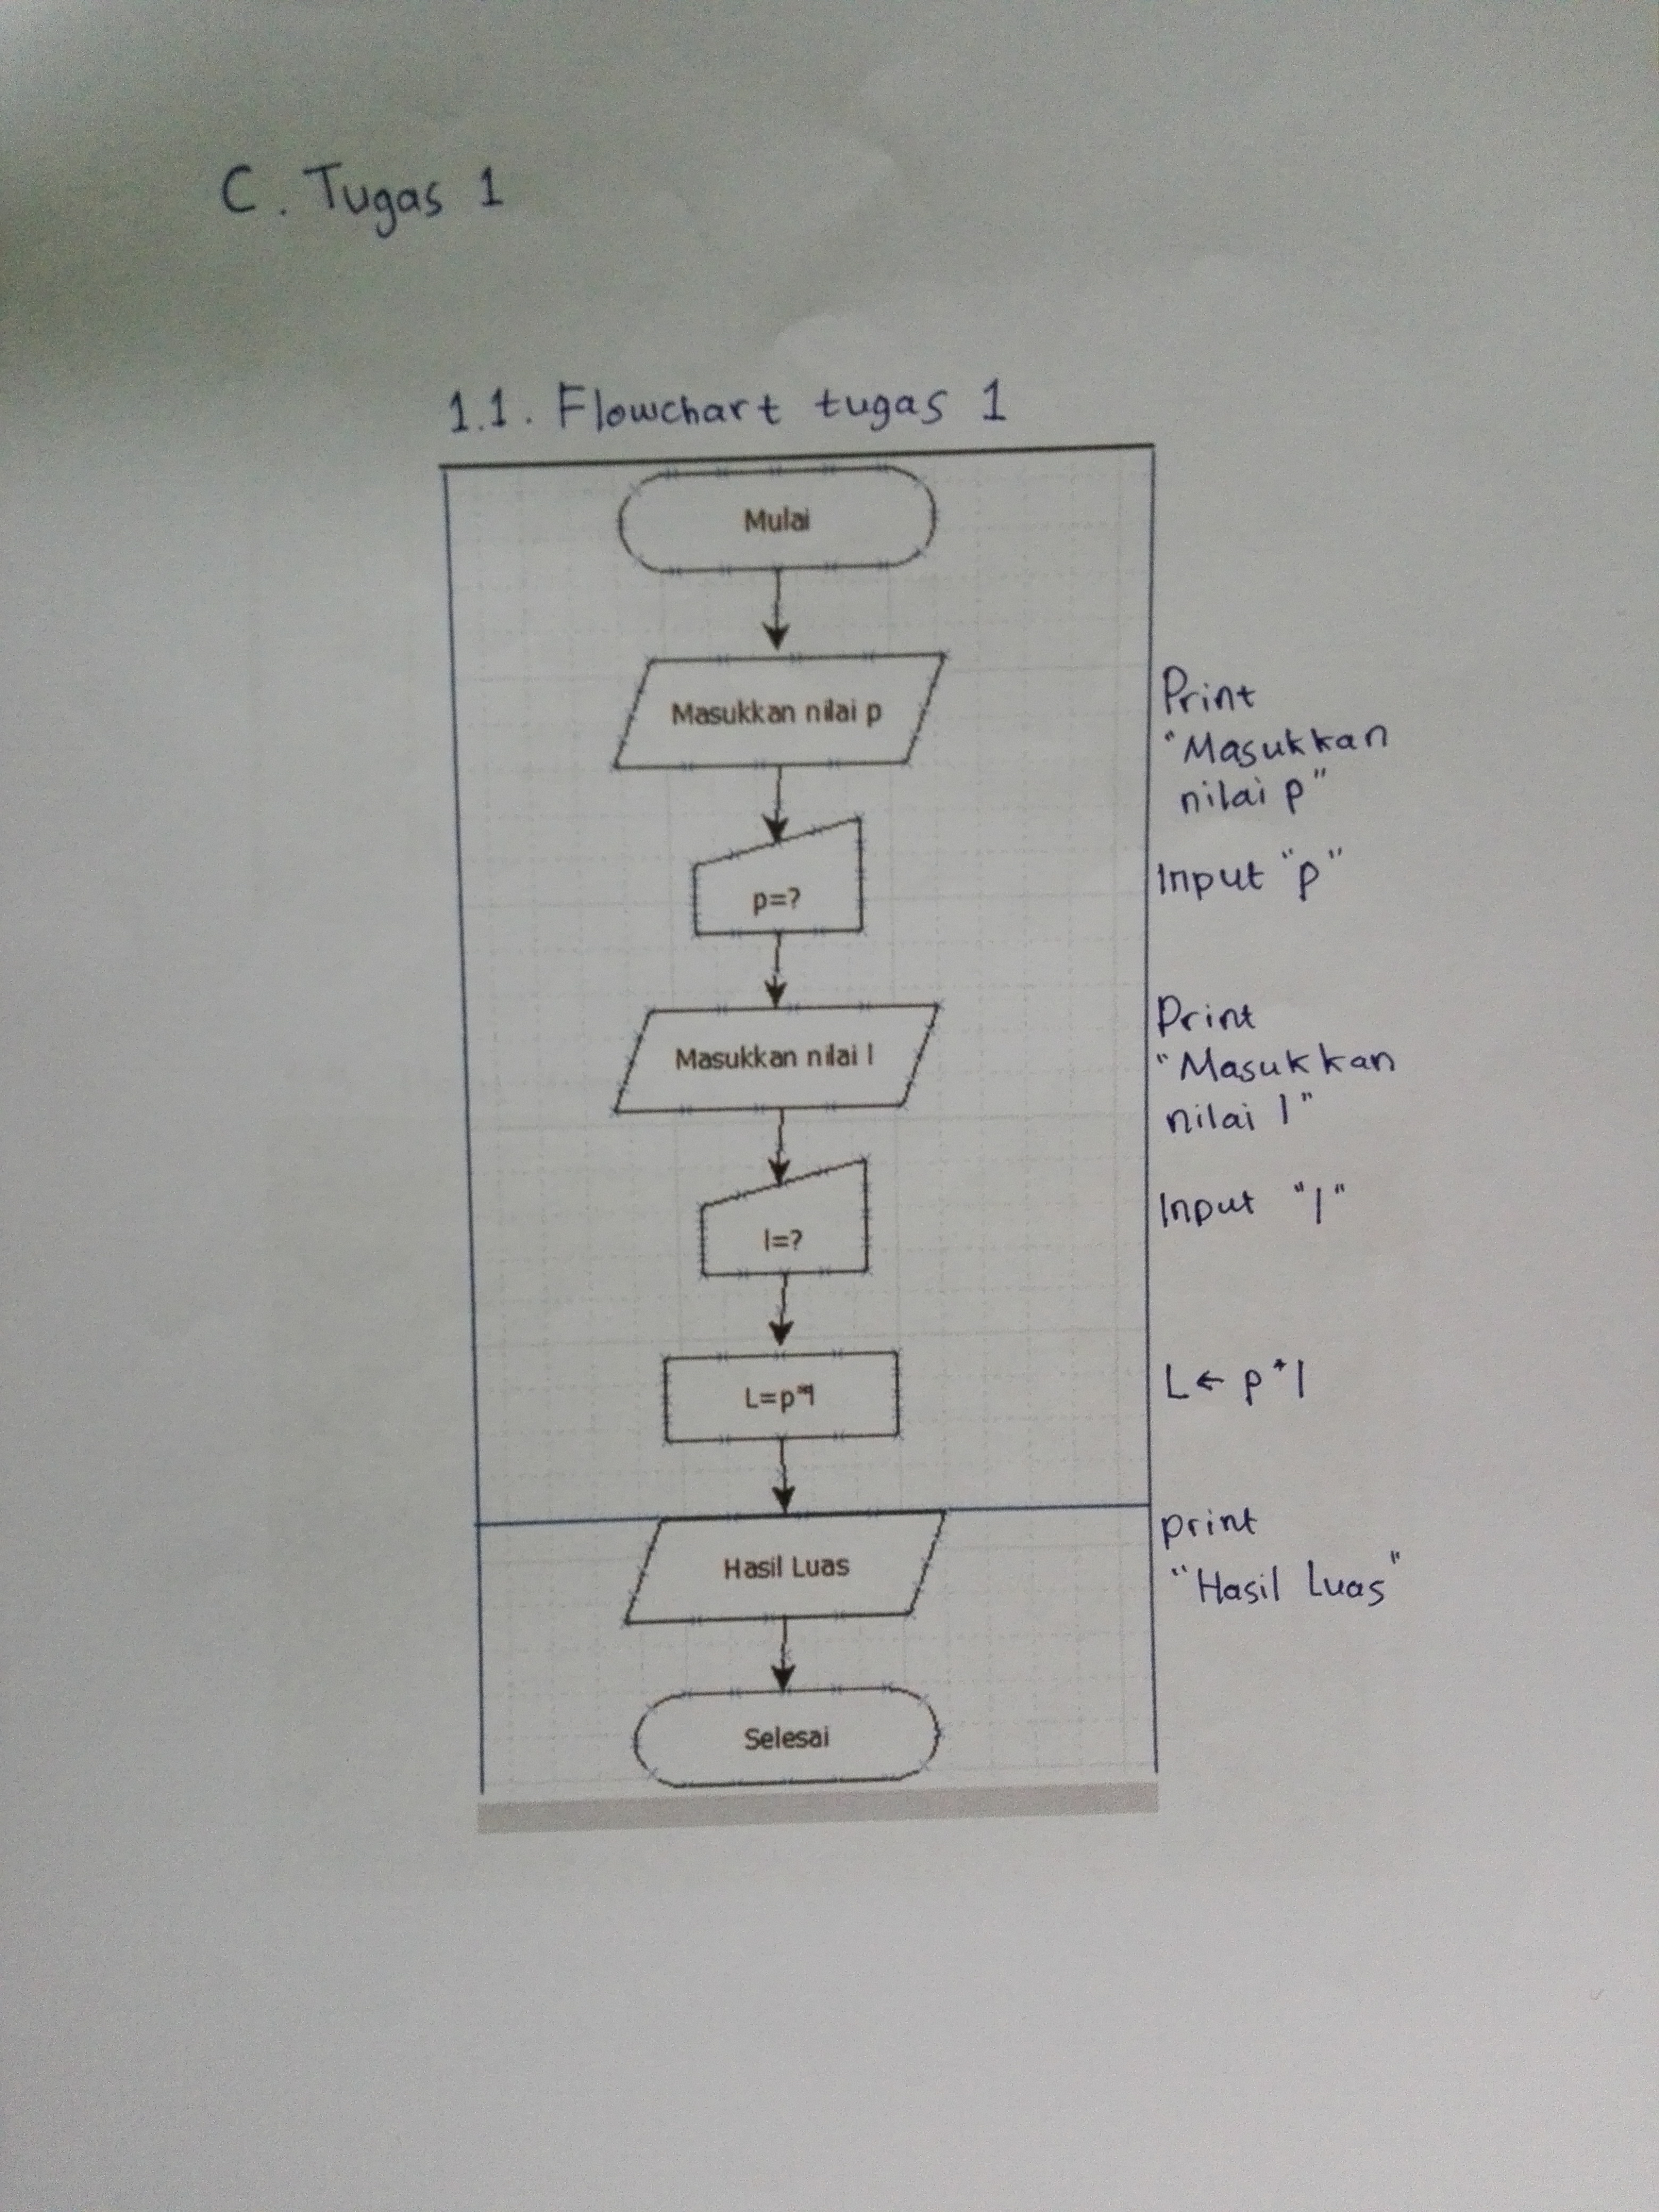 C. Tugas 1
1.1. Flowchart tugas 1
Mulai
Masukkan nilai p
Print
"Masukkan
nilai p"
p=?
Input "p"
Masukkan nilai l
Print
"Masukkan
nilai l"
l=?
Input "l"
L=p*l
L ← p*l
Hasil Luas
print
"Hasil Luas"
Selesai